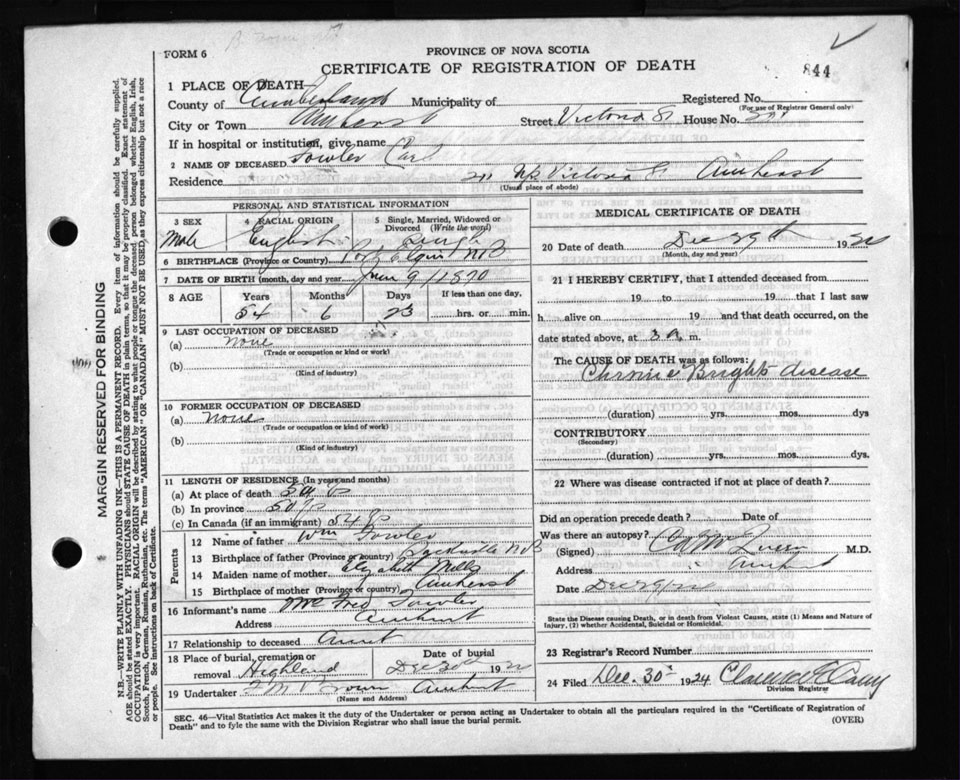 FORM 6
PROVINCE OF NOVA SCOTIA
CERTIFICATE OF REGISTRATION OF DEATH
844
1 PLACE OF DEATH
County of Cumberland Municipality of
Registered No.
(For use of Registrar General only)
City or Town Amherst Street Victoria St House No.
If in hospital or institution, give name
2 NAME OF DECEASED Fowler Carl
Residence Victoria St Amherst
(Usual place of abode)
PERSONAL AND STATISTICAL INFORMATION
3 SEX
Male
4 RACIAL ORIGIN
English
5 Single, Married, Widowed or Divorced (Write the word)
Single
6 BIRTHPLACE (Province or Country) Port Elgin NB
7 DATE OF BIRTH (month, day and year) June 9/1870
8 AGE
Years Months Days If less than one day,
54 6 23 hrs. or min.
9 LAST OCCUPATION OF DECEASED
(a) None
(Trade or occupation or kind or work)
(b)
(Kind of industry)
10 FORMER OCCUPATION OF DECEASED
(a) None
(Trade or occupation or kind of work)
(b)
(Kind of industry)
11 LENGTH OF RESIDENCE (In years and months)
(a) At place of death
(b) In province
(c) In Canada (if an immigrant)
Parents
12 Name of father Wm Fowler
13 Birthplace of father (Province or country) Sackville NB
14 Maiden name of mother Elizabeth Mills
15 Birthplace of mother (Province or country) Amherst
16 Informant's name Mrs Fred Fowler
Address Amherst
17 Relationship to deceased Aunt
18 Place of burial, cremation or removal Highland
Date of burial Dec 30th 192
19 Undertaker Brown Amherst
(Name and Address)
MEDICAL CERTIFICATE OF DEATH
20 Date of death Dec 29th 192
(Month, day and year)
21 I HEREBY CERTIFY, that I attended deceased from
19 to 19 that I last saw
h alive on 19 and that death occurred, on
date stated above, at 3 a. m.
The CAUSE OF DEATH was as follows:
Chronic Brights disease
(duration) yrs. mos. dys
CONTRIBUTORY
(Secondary)
(duration) yrs. mos. dys.
22 Where was disease contracted if not at place of death?
Did an operation precede death? Date of
Was there an autopsy?
(Signed) M.D.
Address Amherst
Date
State the Disease causing Death, or in death from Violent Causes, state (1) Means and Nature of Injury, (2) whether Accidental, Suicidal or Homicidal.
23 Registrar's Record Number
24 Filed Dec. 30th 1924 Clarence
Division Registrar
SEC. 46—Vital Statistics Act makes it the duty of the Undertaker or person acting as Undertaker to obtain all the particulars required in the "Certificate of Registration of
Death" and to fyle the same with the Division Registrar who shall issue the burial permit.
(OVER)
MARGIN RESERVED FOR BINDING
N.B.—WRITE PLAINLY WITH UNFADING INK—THIS IS A PERMANENT RECORD. Every item of information should be carefully supplied.
AGE should be stated EXACTLY. PHYSICIANS should STATE CAUSE OF DEATH in plain terms, so that it may be properly classified. Exact statement of
OCCUPATION is very important. RACIAL ORIGIN will be described by stating to what people or tongue the deceased person belonged whether English, Irish,
Scotch, French, German, Russian, Ruthenian, etc. The terms "AMERICAN" OR "CANADIAN" MUST NOT BE USED, as they express citizenship but not a race
or people. See instructions on back of Certificate.